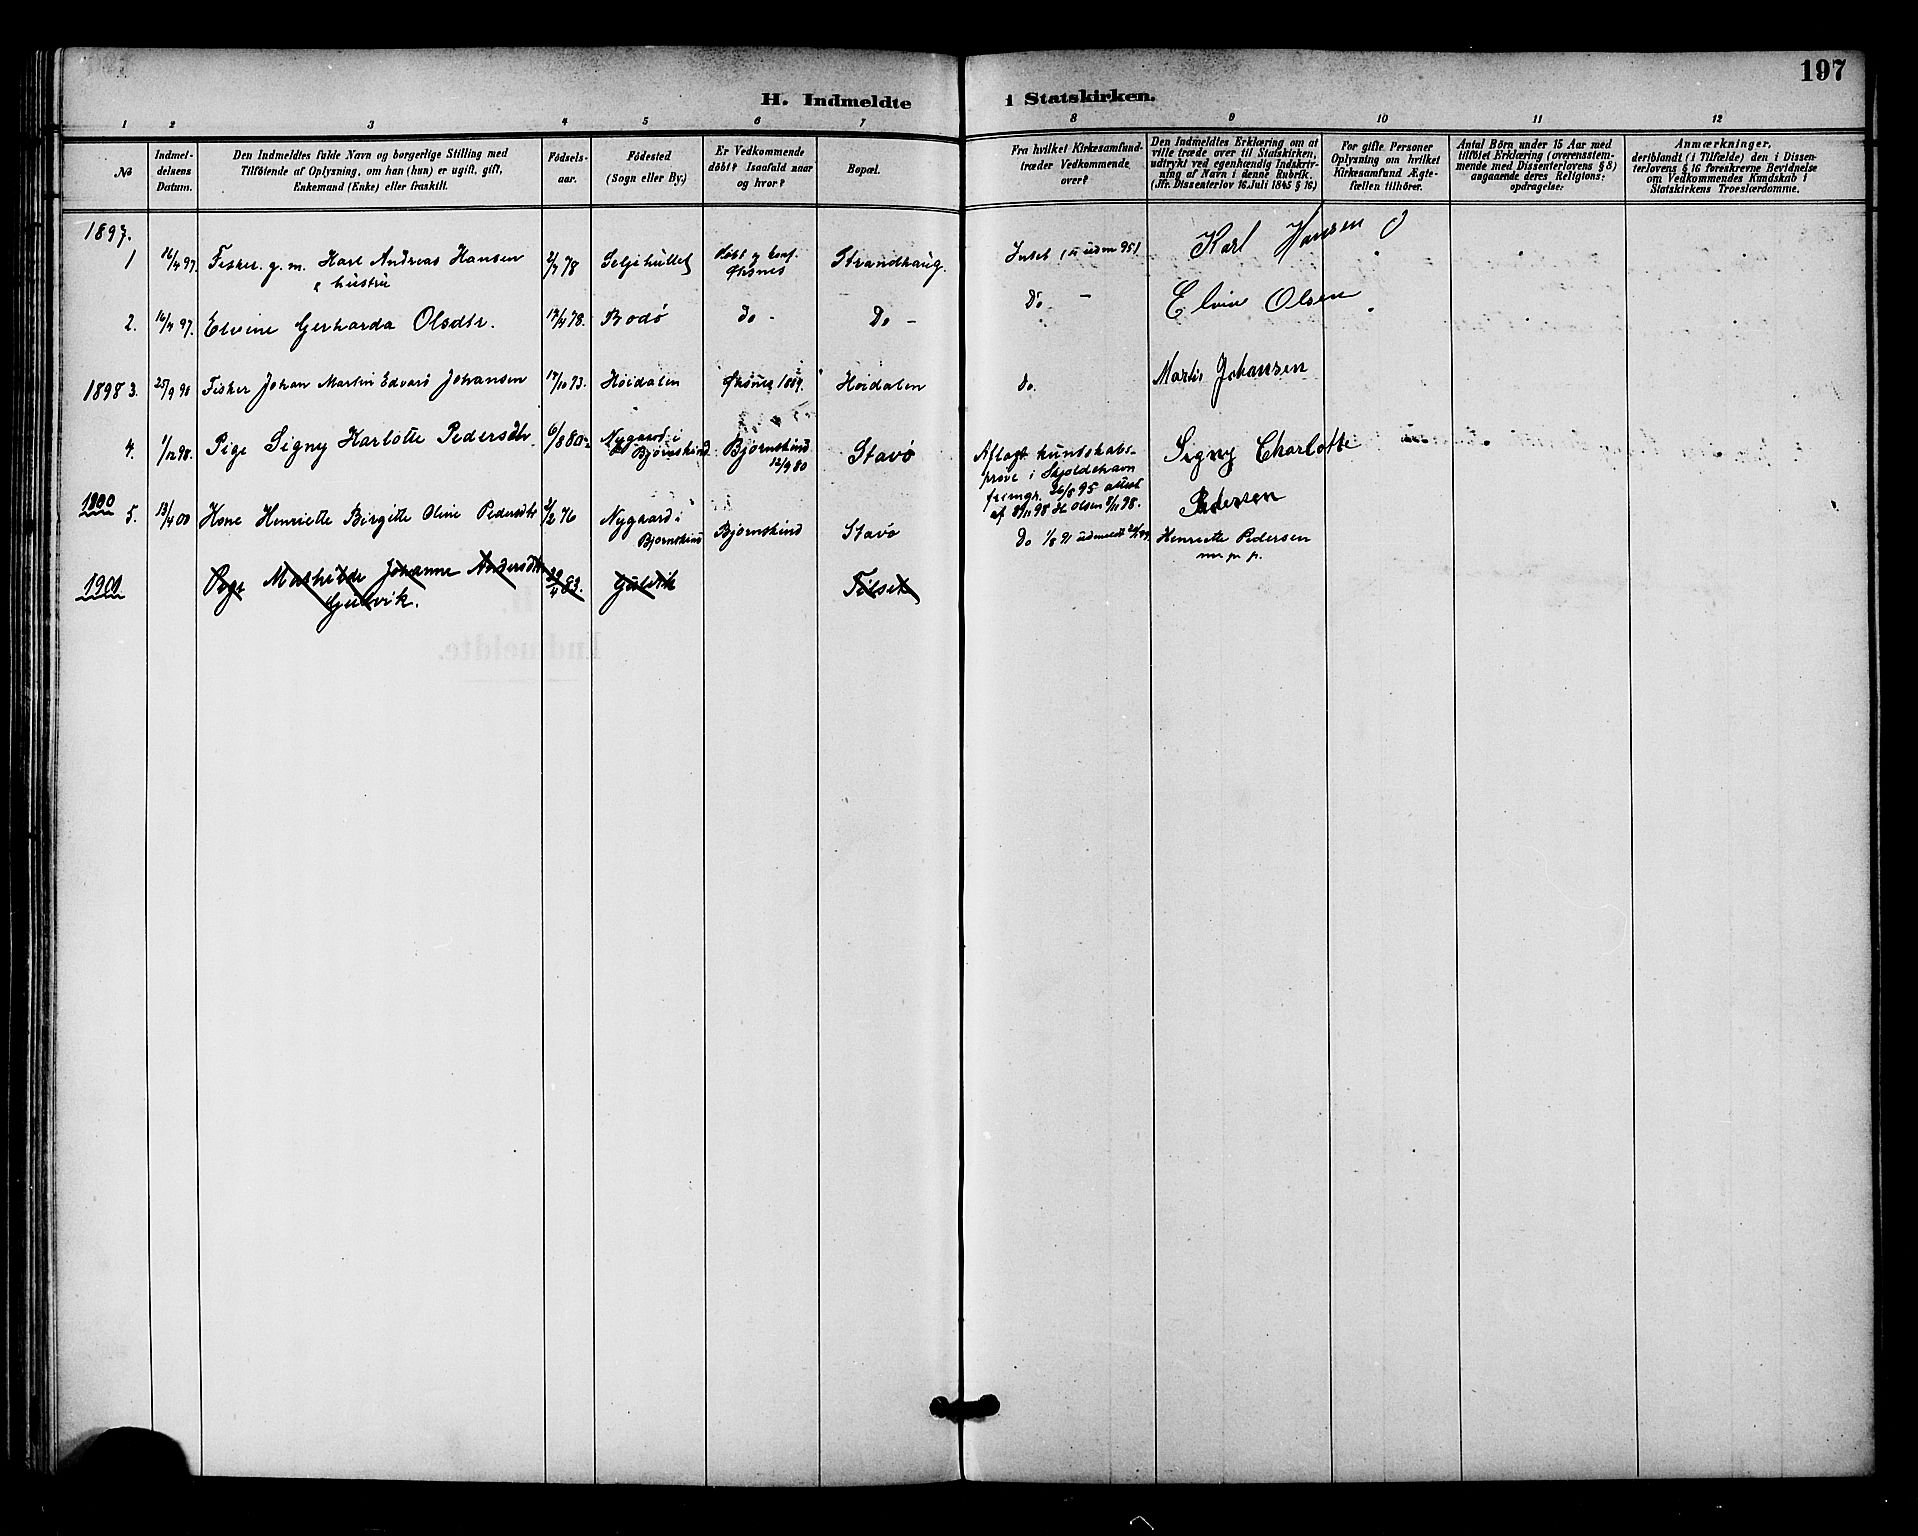 197
H. Indmeldte i Statskirken.
1 2 3 4 5 6 7 8 9 10 11 12
No
Indmel-
delsens
Datum.
Den Indmeldtes fulde Navn og borgerlige Stilling med
Tilföiende af Oplysning, om han (hun) er ugift, gift,
Enkemand (Enke) eller fraskilt.
Födsels-
aar.
Födested
(Sogn eller By.)
Er Vedkommende
döbt? Isaafald naar
og hvor?
Bopæl.
Fra hvilket Kirkesamfund
træder Vedkommende
over?
Den Indmeldtes Erklæring om at
ville træde over til Statskirken,
udtrykt ved egenhendig Indskriv-
ning af Navn i denne Rubrik.
(Jfr. Dissenterlov 16. Juli 1845 § 16.)
For gifte Personer
Oplysning om hvilket
Kirkesamfund Ægte-
fællen tilhörer.
Antal Börn under 15 Aar med
tilföiet Erklæring (overensstem-
mende med Dissenterlovens § 8)
angaaende deres Religions-
opdragelse:
Anmærkninger,
deriblandt (i Tilfælde) den i Dissen-
terlovens § 16 foreskrevne Bevidnelse
om Vedkommendes Kundskab i
Statskirkens Troeslærdomme.
1897.
1 16/4 97. Fisker. g. m. Karl Andreas Hansen 78 Seljehullet Döbt og konf. Strandhaug. Karl Hansen
& hustru Øksnes
2. 16/4 97. Elvine Gerharda Olsdtr. 78. Bodö Do - Do - Do - Elvine Olsen
1898 3. 25/9 98 Fisker Johan Martin Edvard Johansen 17/10 73. Höidalen Øksnes Höidalen Do. Martin Johansen
4. 1/12 98. Pige Signy Karlotte Pedersdtr. 6/8 80 Nygaard i Björnskind Björnskind 12/9 80 Stavö Aflagt kundskabs-
pröve i Skjoldehavn
af Olsen Signy Charlotte
Pedersen
1900
5. 13/4 00 Kone Henriette Birgitte Oline Pedersdtr 76 Nygaard i
Björnskind Björnskind Stavö Do udmeldt Henriette Pedersen
m. p. p.
1901 Pige Mathilde Johanne Andersdtr 83. Gulvik Tilset
Gulvik.
Indmeldte.